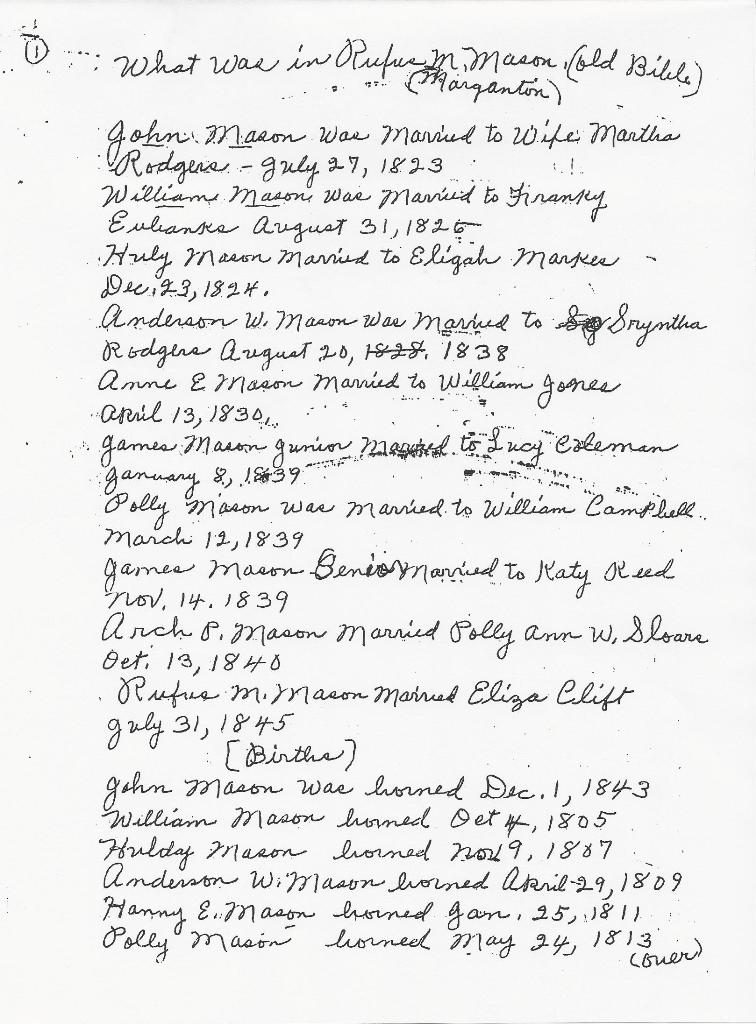 1
What Was in Rufus M. Mason, (old Bible)
(Marganton)
John Mason Was Married to Wife Martha
Rodgers - July 27, 1823
William Mason Was Married to Franky
Eubanks August 31, 1826
Huly Mason Married to Eligah Markes
Dec. 23, 1824.
Anderson W. Mason Was Married to Sryntha
Rodgers August 20, 1828. 1838
Anne E Mason Married to William Jones
April 13, 1830,
James Mason Junior Married to Lucy Coleman
January 8, 1839
Polly Mason Was Married to William Campbell
March 12, 1839
James Mason Senior Married to Katy Reed
Nov. 14. 1839
Arch P. Mason Married Polly Ann W. Sloars
Oct. 13, 1840
Rufus M. Mason Married Eliza Clift
July 31, 1845
[Births)
John Mason Was borned Dec. 1, 1843
William Mason borned Oct 4, 1805
Huldy Mason borned Nov 9, 1807
Anderson W. Mason borned April 29, 1809
Hanny E. Mason borned Jan. 25, 1811
Polly Mason borned May 24, 1813
(over)